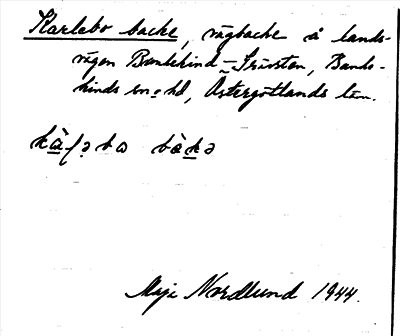 Karlebo backe, vägbacke å lands-
vägen Bankekind–Grävsten, Bande-
kinds sn o. hd, Östergötlands län.
kàɭəbo bàkə
Maja Nordlund 1944.